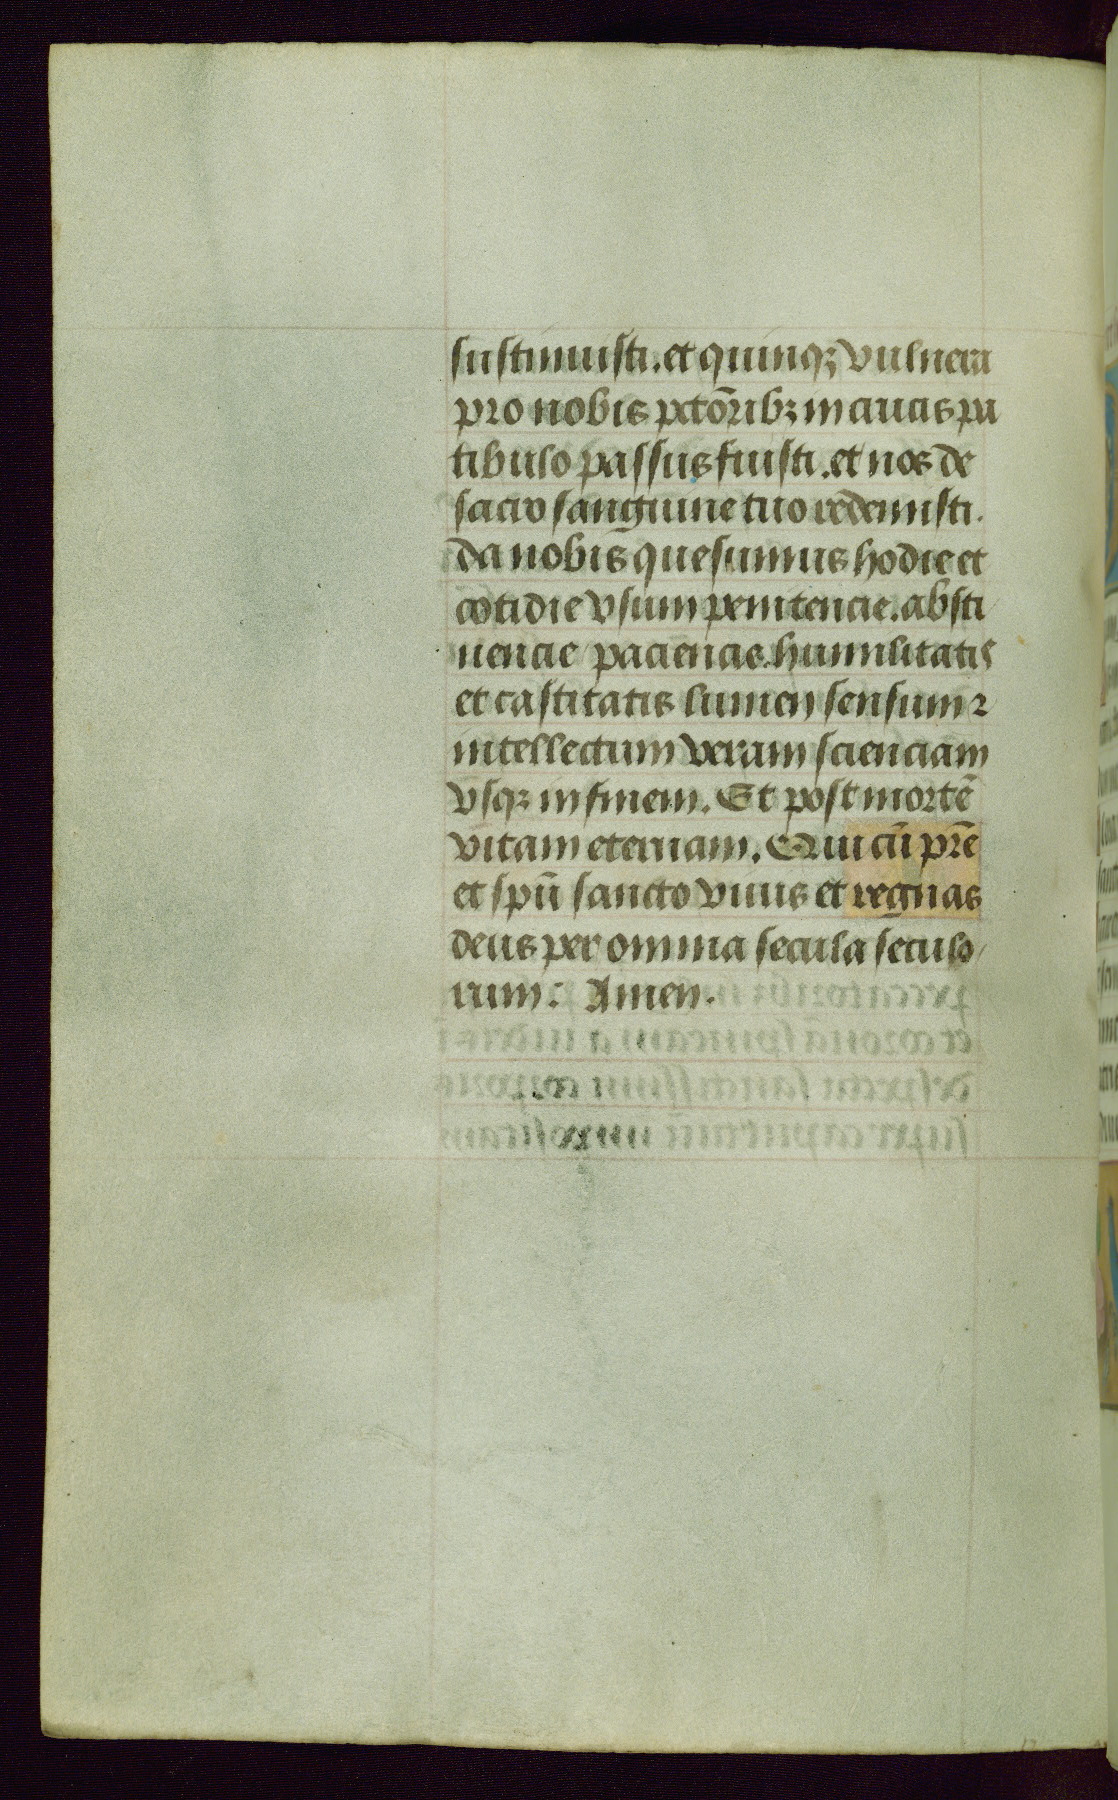 sustinuisti. et quinqꝫ vulnera
pro nobis pctōribꝫ in crucis pa
tibulo passus fuisti. et nos de
sacro sanguine tuo redemisti.
da nobis quesumus hodie et
cotidie vsum penitencie. absti
nencie paciencie humilitatis
et castitatis lumen sensum ⁊
intellectum veram scienciam
vsqꝫ in finem. Et post mortē
vitam eternam. Qui cū pr̄e
et spū sancto viuis et regnas
deus per omnia secula seculo
rum: Amen.